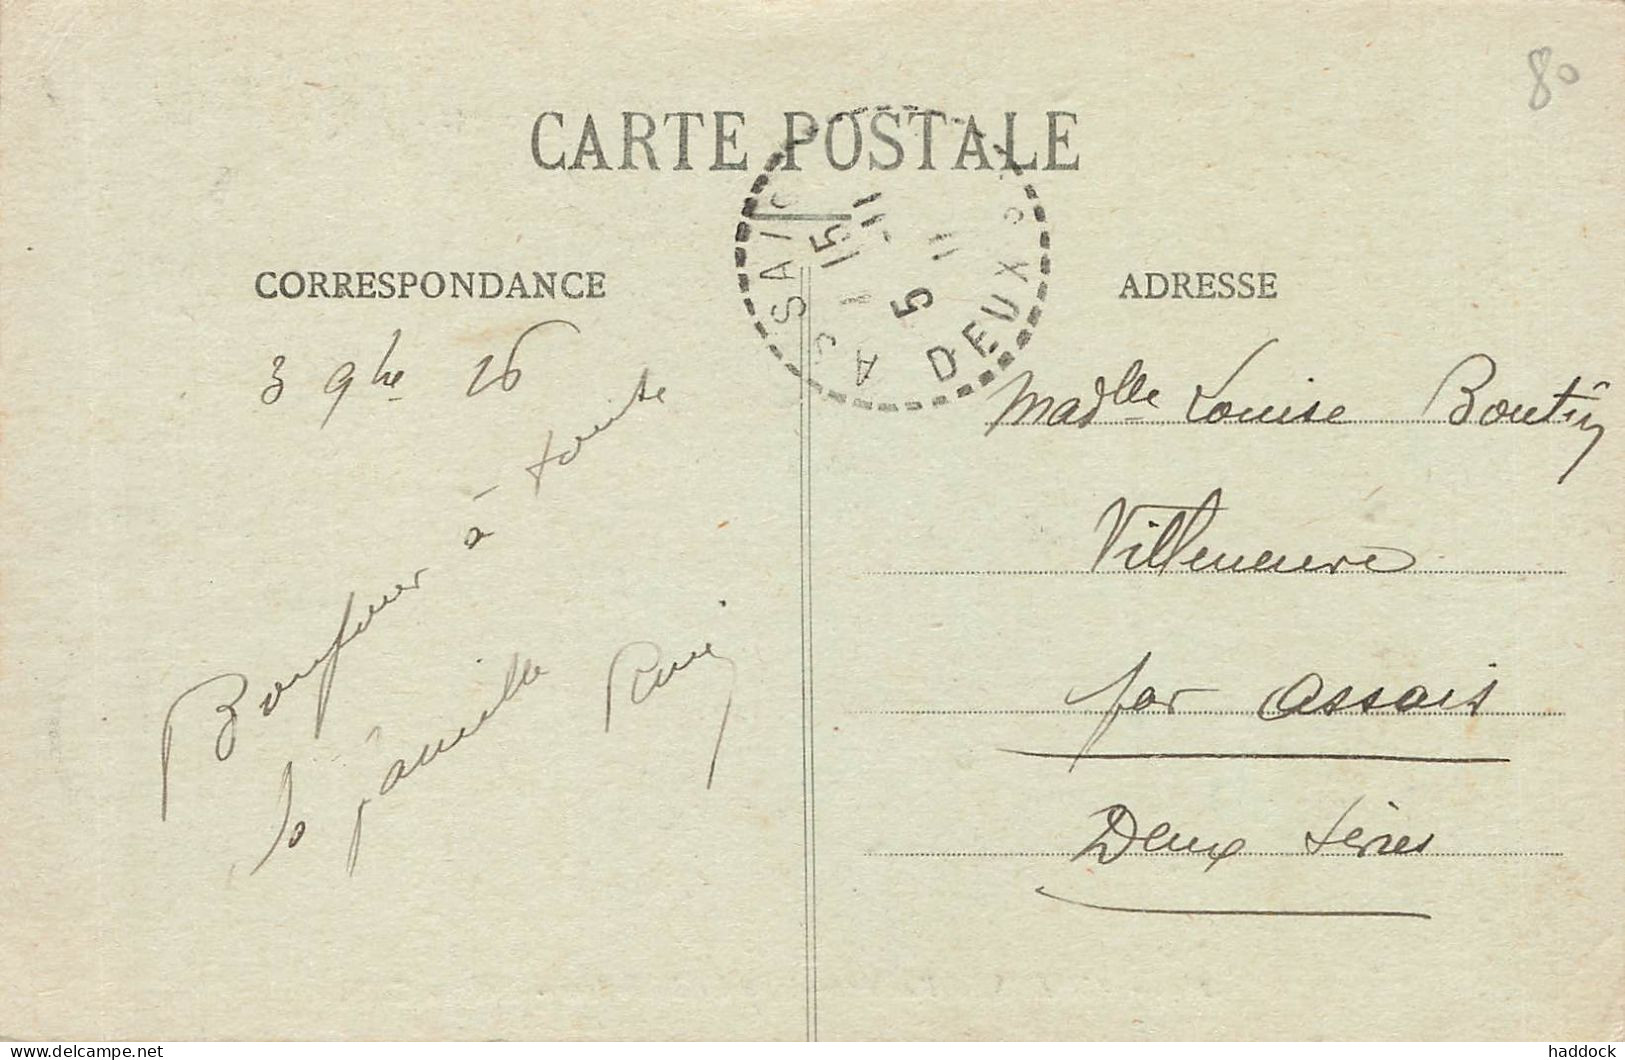 CARTE POSTALE
80
CORRESPONDANCE
3 9bre 16
Bonjour à toute
la famille
ADRESSE
Madlle Louise Boutin
Villeneuve
par Assais
Deux Sèvres
ASSAIS
15
5 11
DEUX S
delcampe.net
haddock